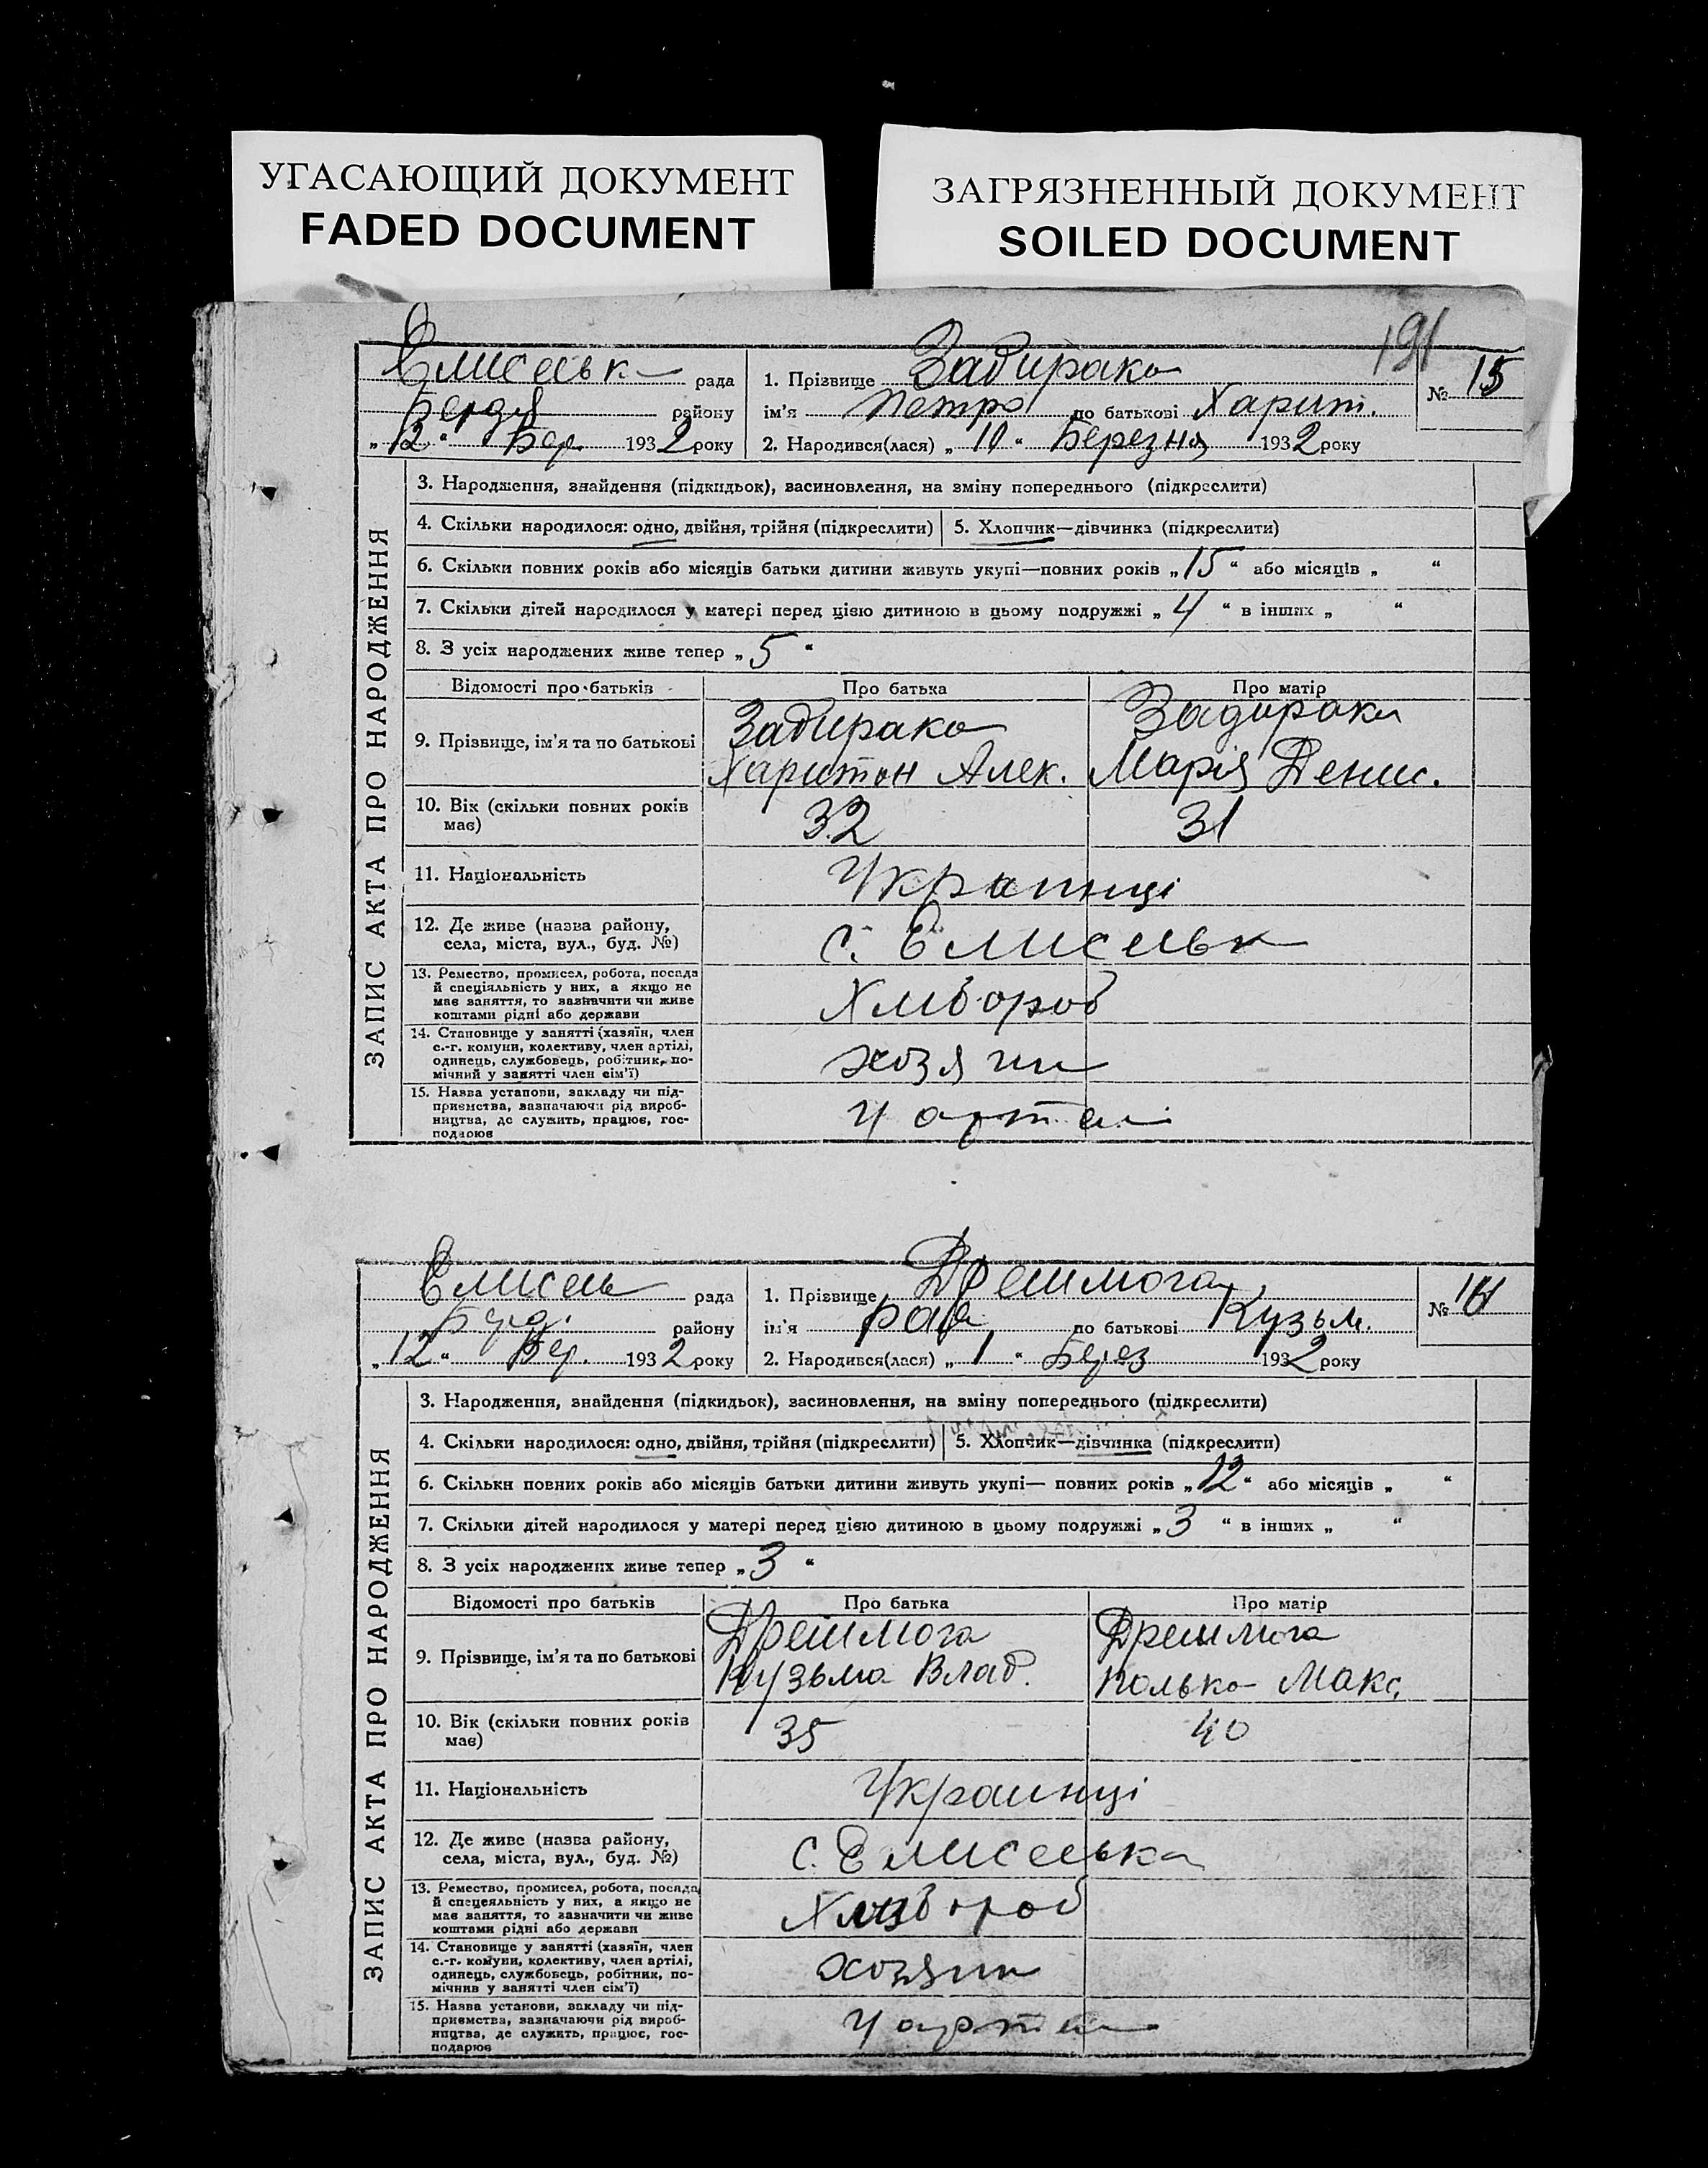 УГАСАЮЩИЙ ДОКУМЕНТ
FADED DOCUMENT
ЗАГРЯЗНЕННЫЙ ДОКУМЕНТ
SOILED DOCUMENT
191
ЗАПИС АКТА ПРО НАРОДЖЕННЯ
Єлисеєськ рада
району
„12“ Бер. 1932 року
1. Прізвище Задирако
ім'я Петро по батькові Харит.
2. Народився(лася) „10“ Березня 1932 року
№ 15
3. Народження, знайдення (підкидьок), васиновлення, на зміну попереднього (підкреслити)
4. Скільки народилося: одно, двійня, трійня (підкреслити)
5. Хлопчик—дівчинка (підкреслити)
6. Скільки повних років або місяців батьки дитини живуть укупі—повних років „15“ або місяців „ “
7. Скільки дітей народилося у матері перед цією дитиною в цьому подружжі „4“ в інших „ “
8. З усіх народжених живе тепер „5“
Відомості про батьків Про батька Про матір
9. Прізвище, ім'я та по батькові
Задирако
Харитон Алек.
Задирака
Марія Денис.
10. Вік (скільки повних років
має)
32 31
11. Національність Украинці
12. Де живе (назва району,
села, міста, вул., буд. №)
с. Елисеськ
13. Ремество, промисел, робота, посада
й спеціяльність у них, а якщо не
має заняття, то зазначити чи живе
коштами рідні або держави
Хлібороб
14. Становище у занятті (хазяїн, член
с.-г. комуни, колективу, член артілі,
одинець, службовець, робітник, по-
мічний у занятті член сім'ї)
хозяин
15. Назва установи, закладу чи під-
приємства, зазначаючи рід вироб-
ництва, де служить, працює, гос-
подарює
У артели
ЗАПИС АКТА ПРО НАРОДЖЕННЯ
рада
району
„12“ Бер. 1932 року
1. Прізвище Дрешлюга
ім'я по батькові Кузьм.
2. Народився(лася) „1“ Берез 1932 року
№ 16
3. Народження, знайдення (підкидьок), васиновлення, на зміну попереднього (підкреслити)
4. Скільки народилося: одно, двійня, трійня (підкреслити)
5. Хлопчик—дівчинка (підкреслити)
6. Скільки повних років або місяців батьки дитини живуть укупі— повних років „12“ або місяців „ “
7. Скільки дітей народилося у матері перед цією дитиною в цьому подружжі „3“ в інших „ “
8. З усіх народжених живе тепер „3“
Відомості про батьків Про батька Про матір
9. Прізвище, ім'я та по батькові
Дрешлюга
Кузьма Влад.
Дрешлюга
Макс.
10. Вік (скільки повних років
має)
35 40
11. Національність Украинці
12. Де живе (назва району,
села, міста, вул., буд. №)
с. Елисеська
13. Ремество, промисел, робота, посада
й спецеяльність у них, а якщо не
має заняття, то зазначити чи живе
коштами рідні або держави
Хлібороб
14. Становище у занятті (хазяїн, член
с.-г. комуни, колективу, член артілі,
одинець, службовець, робітник, по-
мічнив у занятті член сім'ї)
хозяин
15. Назва установи, закладу чи під-
приємства, зазначаючи рід вироб-
ництва, де служить, працює, гос-
подарює
У артели